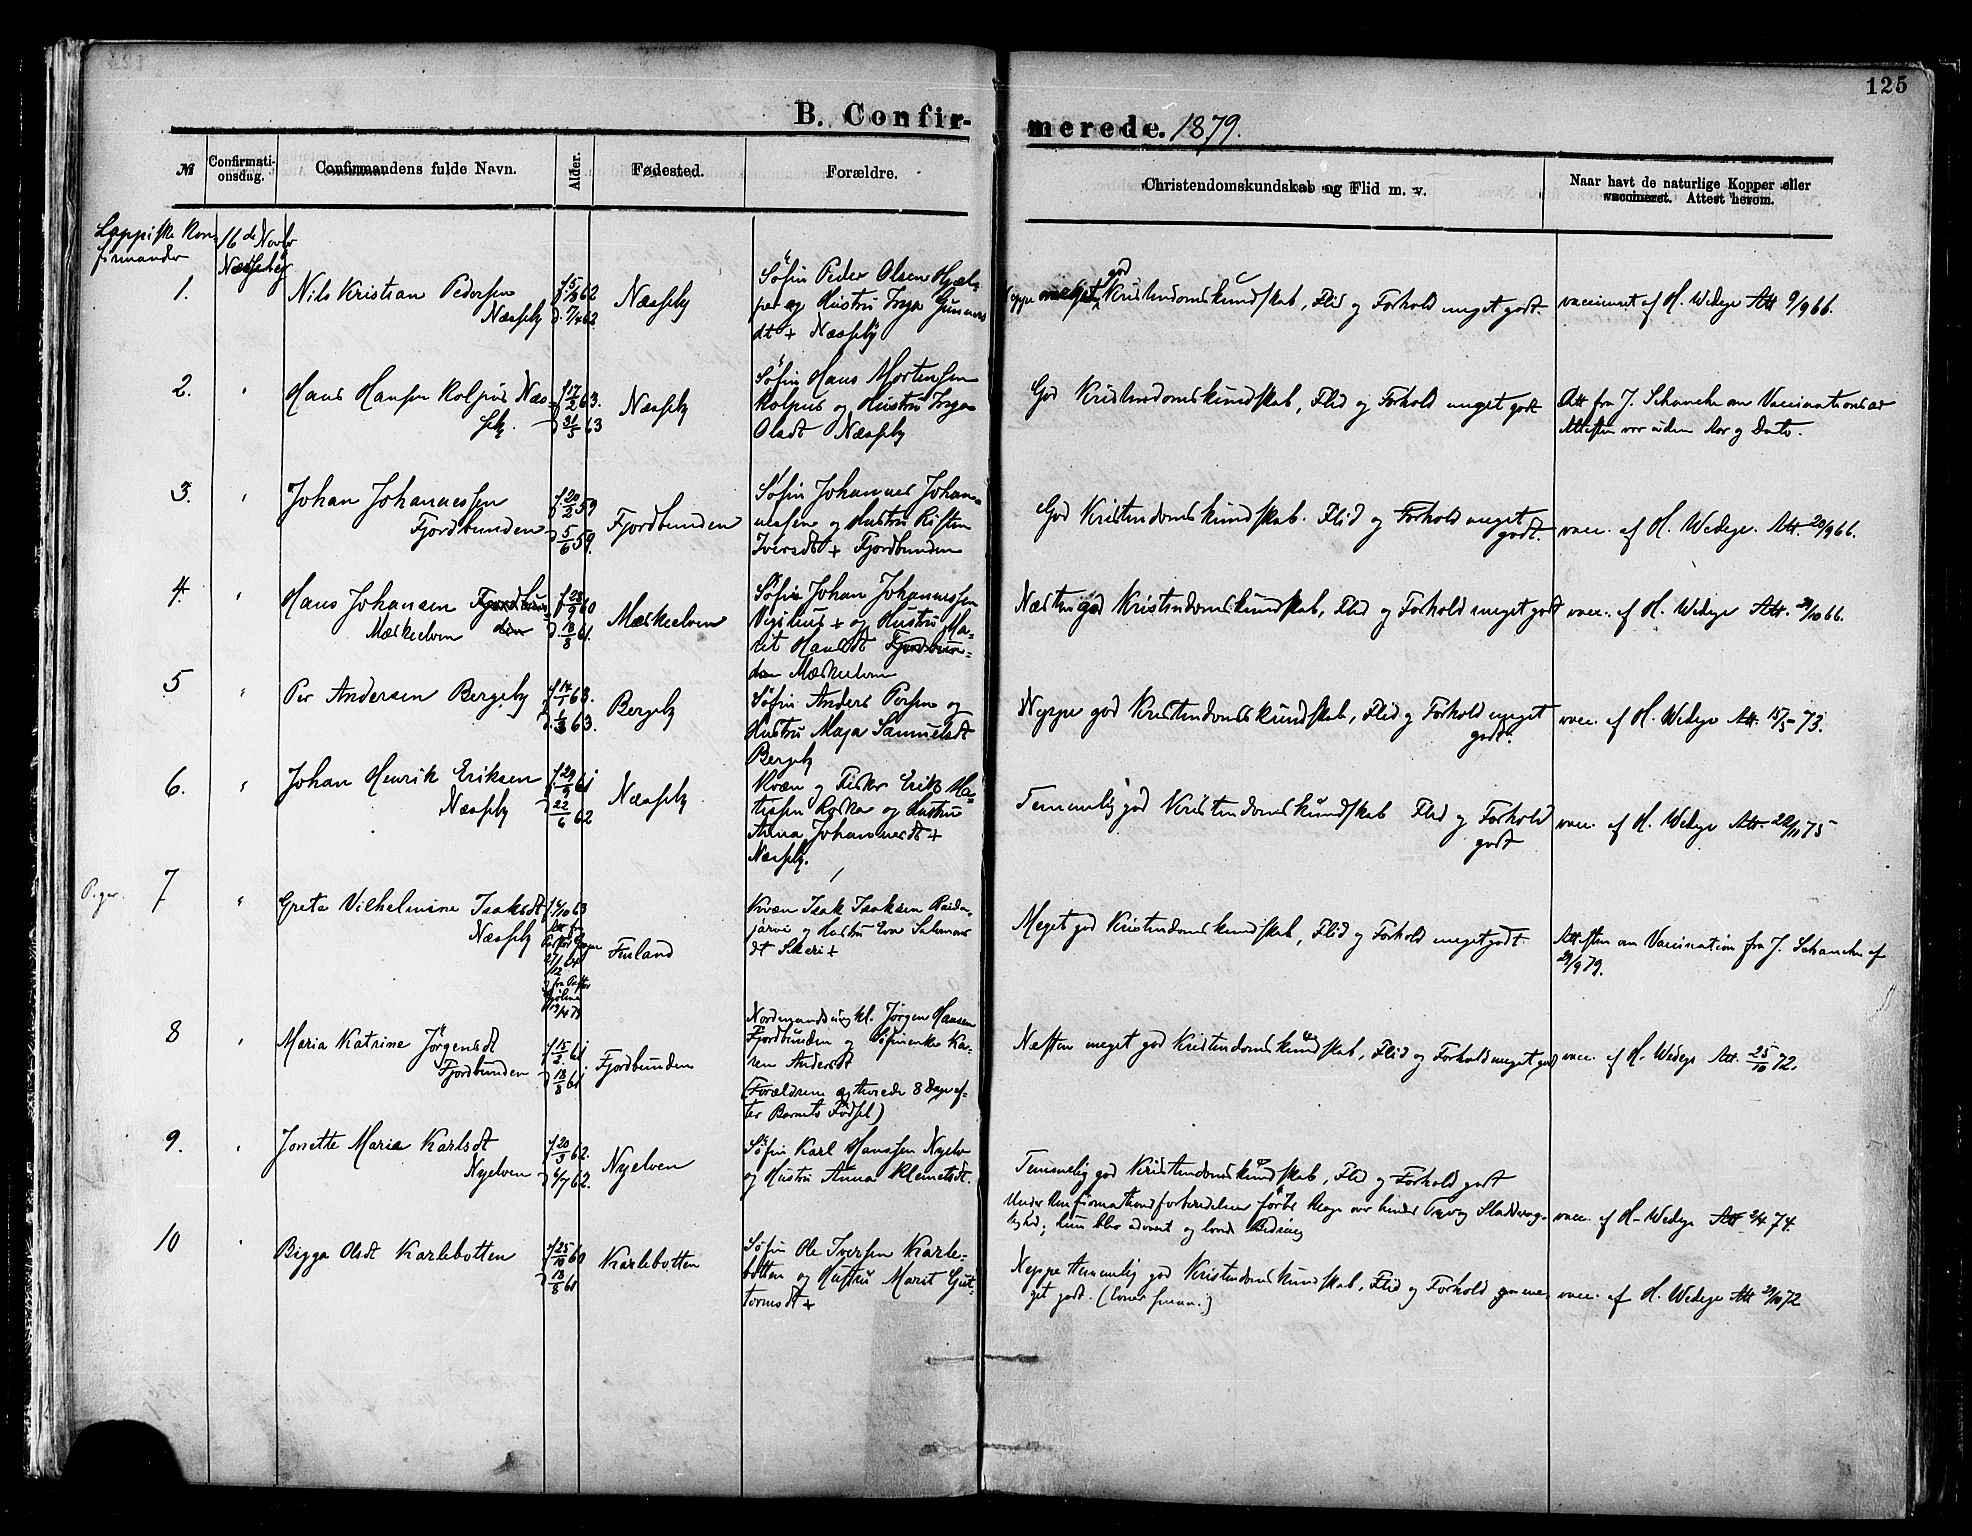 125
B. Confirmerede. 1879.
№
Confirmationsdag.
Confirmandens fulde Navn.
Alder.
Fødested.
Forældre.
Christendomskundskab og Flid m. v.
Naar havt de naturlige Kopper eller
vaccineret. Attest herom.
Lappiske Kon-
firmander
16de Novbr
Næsseby
1.
Nils Kristian Pedersen
Næsseby
f. 5/3 62
d. 7/4 62
Næsseby
Søfin Peder Olsen Hjæl-
per og Hustru Inga Gunners
dt + Næsseby
Neppe meget god Kristendomskundskab, Flid og Forhold meget godt.
vaccineret af H. Wedege Att 9/9 66.
2.
"
Hans Hansen Kolpus Næs-
seby.
f. 17/2 63.
d. 31/5 63
Næsseby
Søfin Hans Mortensen
Kolpus og Hustru Inga
Olsdt Næsseby
God Kristendomskundskab, Flid og Forhold meget godt
Att fra J. Schanche om Vaccination
Attesten var uden Aar og Dato.
3.
"
Johan Johannessen
Fjordbunden
f. 20/2 59
d. 5/6 59.
Fjordbunden
Søfin Johannes Johan-
nesen og Hustru Risten
Iversdt + Fjordbunden
God Kristendomskundskab. Flid og Forhold meget
godt.
vacc. af H. Wedege. Att. 20/9 66.
4.
"
Hans Johansen Fjordbun-
Mæskelven den
f. 28/9 60
d. 18/3 61.
Mæskelven
Søfin Johan Johannessen
Nigilius + og Hustru Ma-
rit Hansdt Fjordbun-
den Mæskelven
Næsten god Kristendomskundskab, Flid og Forhold meget godt
vacc. af H. Wedege Att. 29/10 66.
5
"
Per Andersen Bergeby
f. 14/1 63.
d. 1/3 63.
Bergeby
Søfin Anders Persen og
Hustru Maja Samuelsdt
Bergeby
Neppe god Kristendomskundskab, Flid og Forhold meget
godt.
vacc. af H. Wedege Att. 15/5 73.
6.
"
Johan Henrik Eriksen
Næsseby
f. 29/9 61
22/6 62
Næsseby
Kvæn og Fisker Erik Ma-
tissen og Hustru
Anna Johannesdt +
Næsseby.
Temmelig god Kristendomskundskab Flid og Forhold
godt
vacc. af H. Wedege Att. 22/11 75
Piger.
7
"
Grete Vilhelmine Isaksdt
Næsseby
f. 6/10 63
Att fra
fra Pastor
Finland
Kvæn Isak Isaksen
järvi og Hustru Eva Salomons
dt Skeri +
Meget god Kristendomskundskab, Flid og Forhold meget godt.
Attesten om Vaccination fra J. Schanche af
29/9 79.
8
"
Maria Katrine Jørgensdt
Fjordbunden
f. 15/2 61
d. 18/3 61
Fjordbunden
Nordmandsungkl. Jørgen Hansen
Fjordbunden og Søfinenke Ka-
ren Andersdt
(Forældrene ægteviede 8 Dage ef-
ter Barnets Fødsel)
Næsten meget god Kristendomskundskab, Flid og Forhold meget godt
vacc. af H. Wedege Att. 25/10 72.
9.
"
Jonette Marie Karlsdt
Nyelven
f. 20/3 62.
d. 6/7 62.
Nyelven
Søfin Karl Hanssen Nyelv
og Hustru Anna Klemetsdt.
Temmelig god Kristendomskundskab, Flid og Forhold godt
Under Konfirmationsforberedelsen førtes Klage over hendes Sladderag-
tighed; hun blev advaret og lovede Bedring
vacc. af H. Wedege Att 2/4 74.
10
"
Bigga Olsdt Karlebotten
f. 25/10 60
d. 18/3 61
Karlebotten
Søfin Ole Iversen Karle-
botten og Hustru Marit Gut-
tormsdt +
Neppe temmelig god Kristendomskundskab, Flid og Forhold me-
get godt.
vacc. af H. Wedege Att 29/10 72